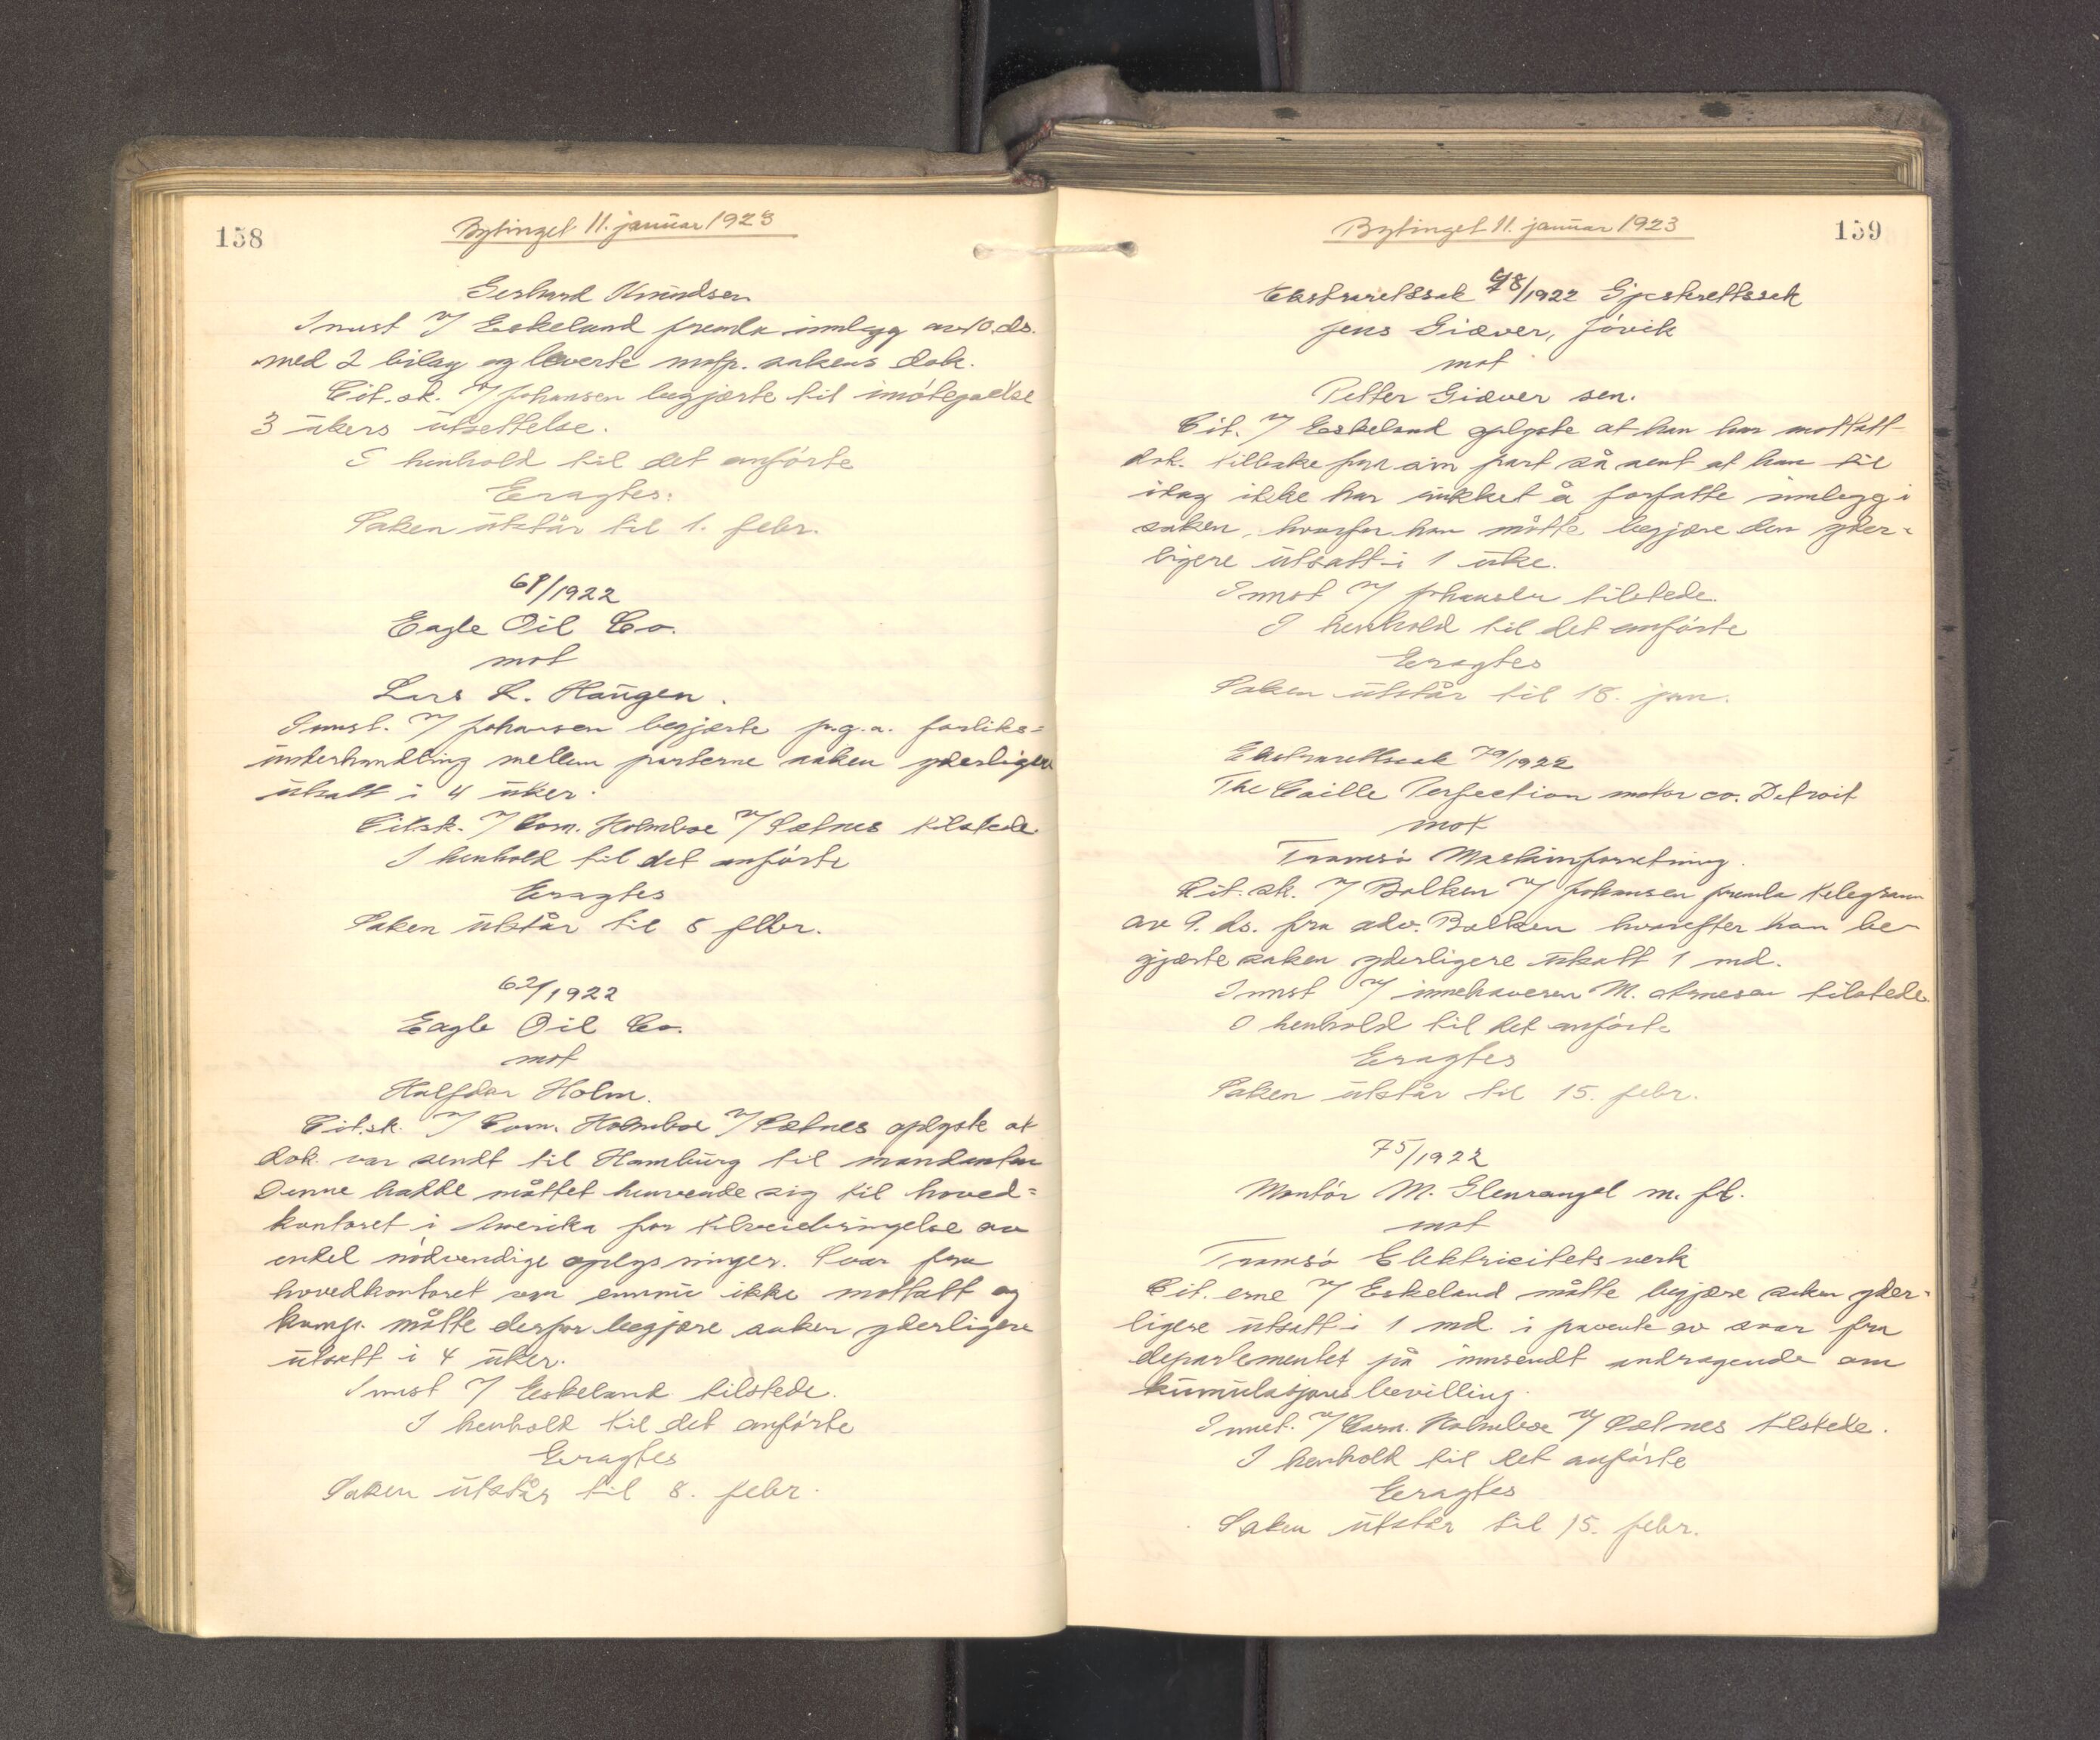 158
Bytinget 11. januar 1923
Gerhard Knudsen
Innst v/ Eskeland fremla innlegg av 10. ds.
med 2 bilag og leverte motp. sakens dok.
Cit. sk. v/ Johansen begjærte til imótegåelse
3 ukers utsettelse.
I henhold til det anførte
Eragtes:
Saken utstår til 1. febr.
61/1922
Eagle Oil Co.
mot
Lars L. Haugen.
Innst. v/ Johansen begjærte p.g.a. forliks=
underhandling mellem parterne saken yderligere
utsatt i 4 uker.
Citsk. v/ Corn. Holmboe v/ Sætnes tilstede
I henhold til det anførte
Eragtes
Saken utstår til 8 febr.
62/1922
Eagle Oil Co.
mot
Halfdan Holm.
Cit.sk. v/ Corn. Holmboe v/ Sætnes oplyste at
dok. var sendt til Hamburg til mandanten
Denne hadde måttet henvende sig til hoved=
kontoret i Amerika for tilveiebringelse av
enkel nödvendige oplysninger. Svar fra
hovedkontoret var ennu ikke mottatt og
komp. måtte derfor begjære saken yderligere
utsatt i 4 uker.
Innst v/ Eskeland tilstede.
I henhold til det anførte
Eragtes
Saken utstår til 8. febr.
Bytinget 11. januar 1923
159
Ekstraretssak 78/1922 Gjesterettssak
Jens Giæver, Jövik
mot
Petter Giæver sen.
Cit. v/ Eskeland oplyste at han har mottatt
dok. tilbake fra sin part så sent at han til
idag ikke har rukket å forfatte innlegg i
saken, hvorfor han måtte begjære den yder=
ligere utsatt i 1 uke.
Innst v/ Johansen tilstede.
I henhold til det anførte
Eragtes
Saken utstår til 18. jan.
Ekstrarettssak 79/1922
The Caille Perfection motor co. Detroit
mot
Tromsö Maskinforretning.
Cit. sk. v/ Balken v/ Johansen fremla telegram
av 9. ds. fra adv. Balken hvorefter han be-
gjærte saken yderligere utsatt 1 md.
Innst v/ innehaveren M. Arnesen tilstede.
I henhold til det anførte
Eragtes
Saken utstår til 15. febr.
75/1922
Montör M. Elenrangel m. fl.
mot
Tromsö Elektricitetsverk
Cit. erne v/ Eskeland måtte begjære saken yder=
ligere utsatt i 1 md. i pavente av svar fra
departementet på innsendt andragende om
kumulasjonsbevilling.
Innst. v/ Corn. Holmboe v/ Sætnes tilstede.
I henhold til det anførte
Eragtes
Saken utstår til 15. febr.